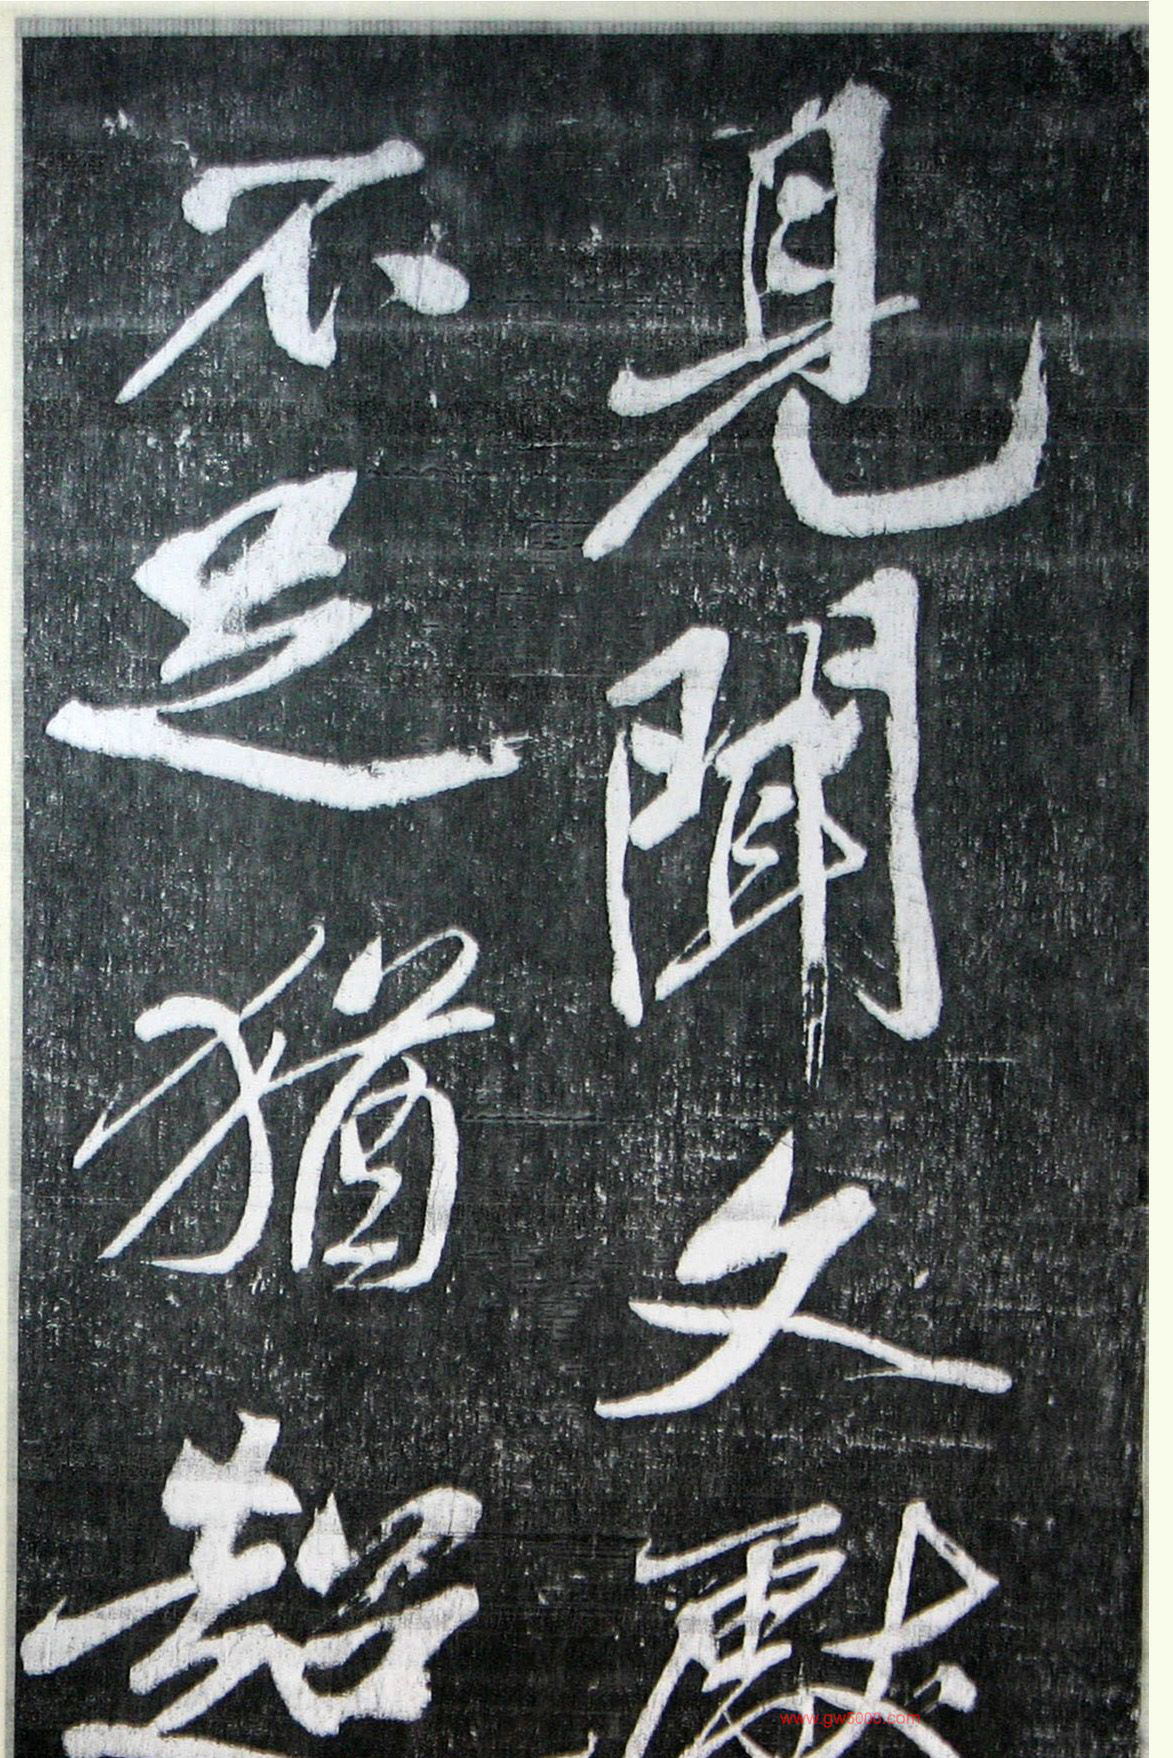 見聞文獻
不足猶超
www.gw5000.com